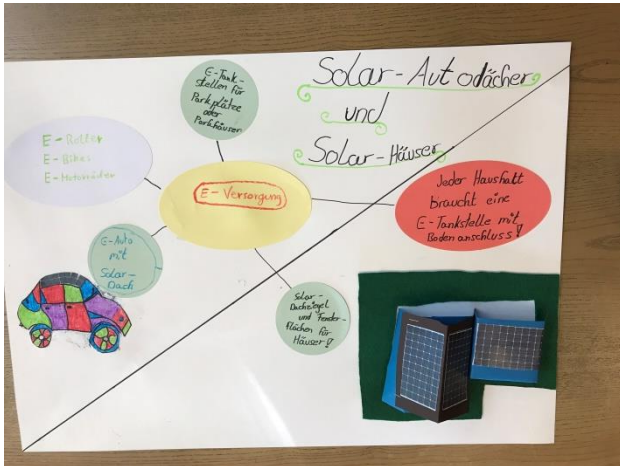 Solar-Autodächer
und
Solar-Häuser
E-Tank-
stellen für
Parkplätze
oder
Parkhäuser
E-Roller
E-Bikes
E-Motorräder
E-Versorgung
Jeder Haushalt
braucht eine
E-Tankstelle mit
Bodenanschluss!
E-Auto
mit
Solar-
Dach
Solar-
Dachziegel
und Fenster-
flächen für
Häuser!